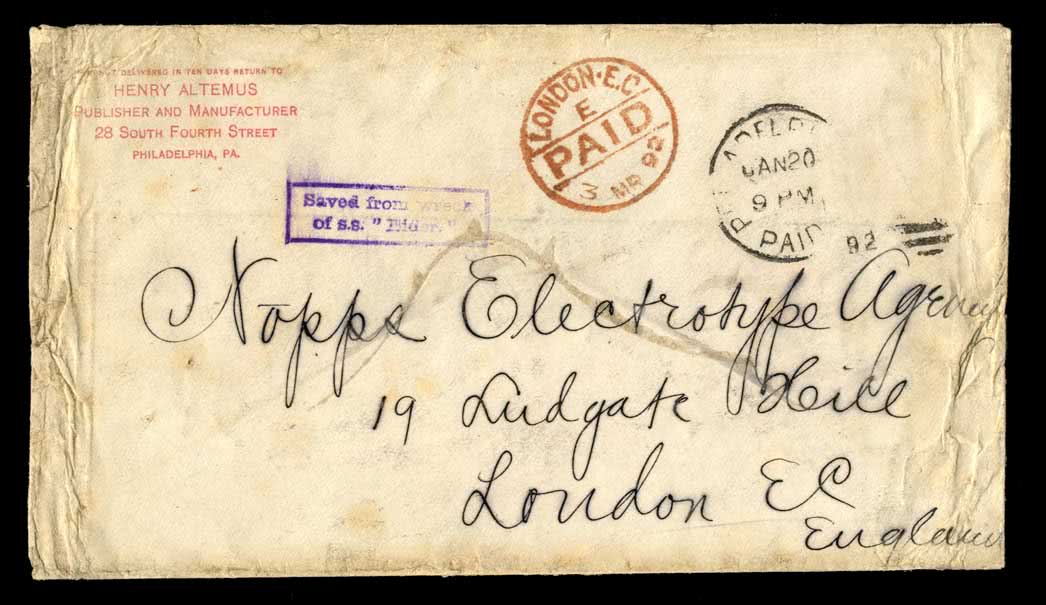 NOT DELIVERED IN TEN DAYS RETURN TO
HENRY ALTEMUS
PUBLISHER AND MANUFACTURER
28 SOUTH FOURTH STREET
PHILADELPHIA, PA.
LONDON·E.C
E
PAID
3 MR 92
ADELP
JAN 20
9 PM
PAID
92
Saved from wreck
of s.s. "Eider."
Nopps Electrotype Agency
19 Ludgate Hill
London EC
England